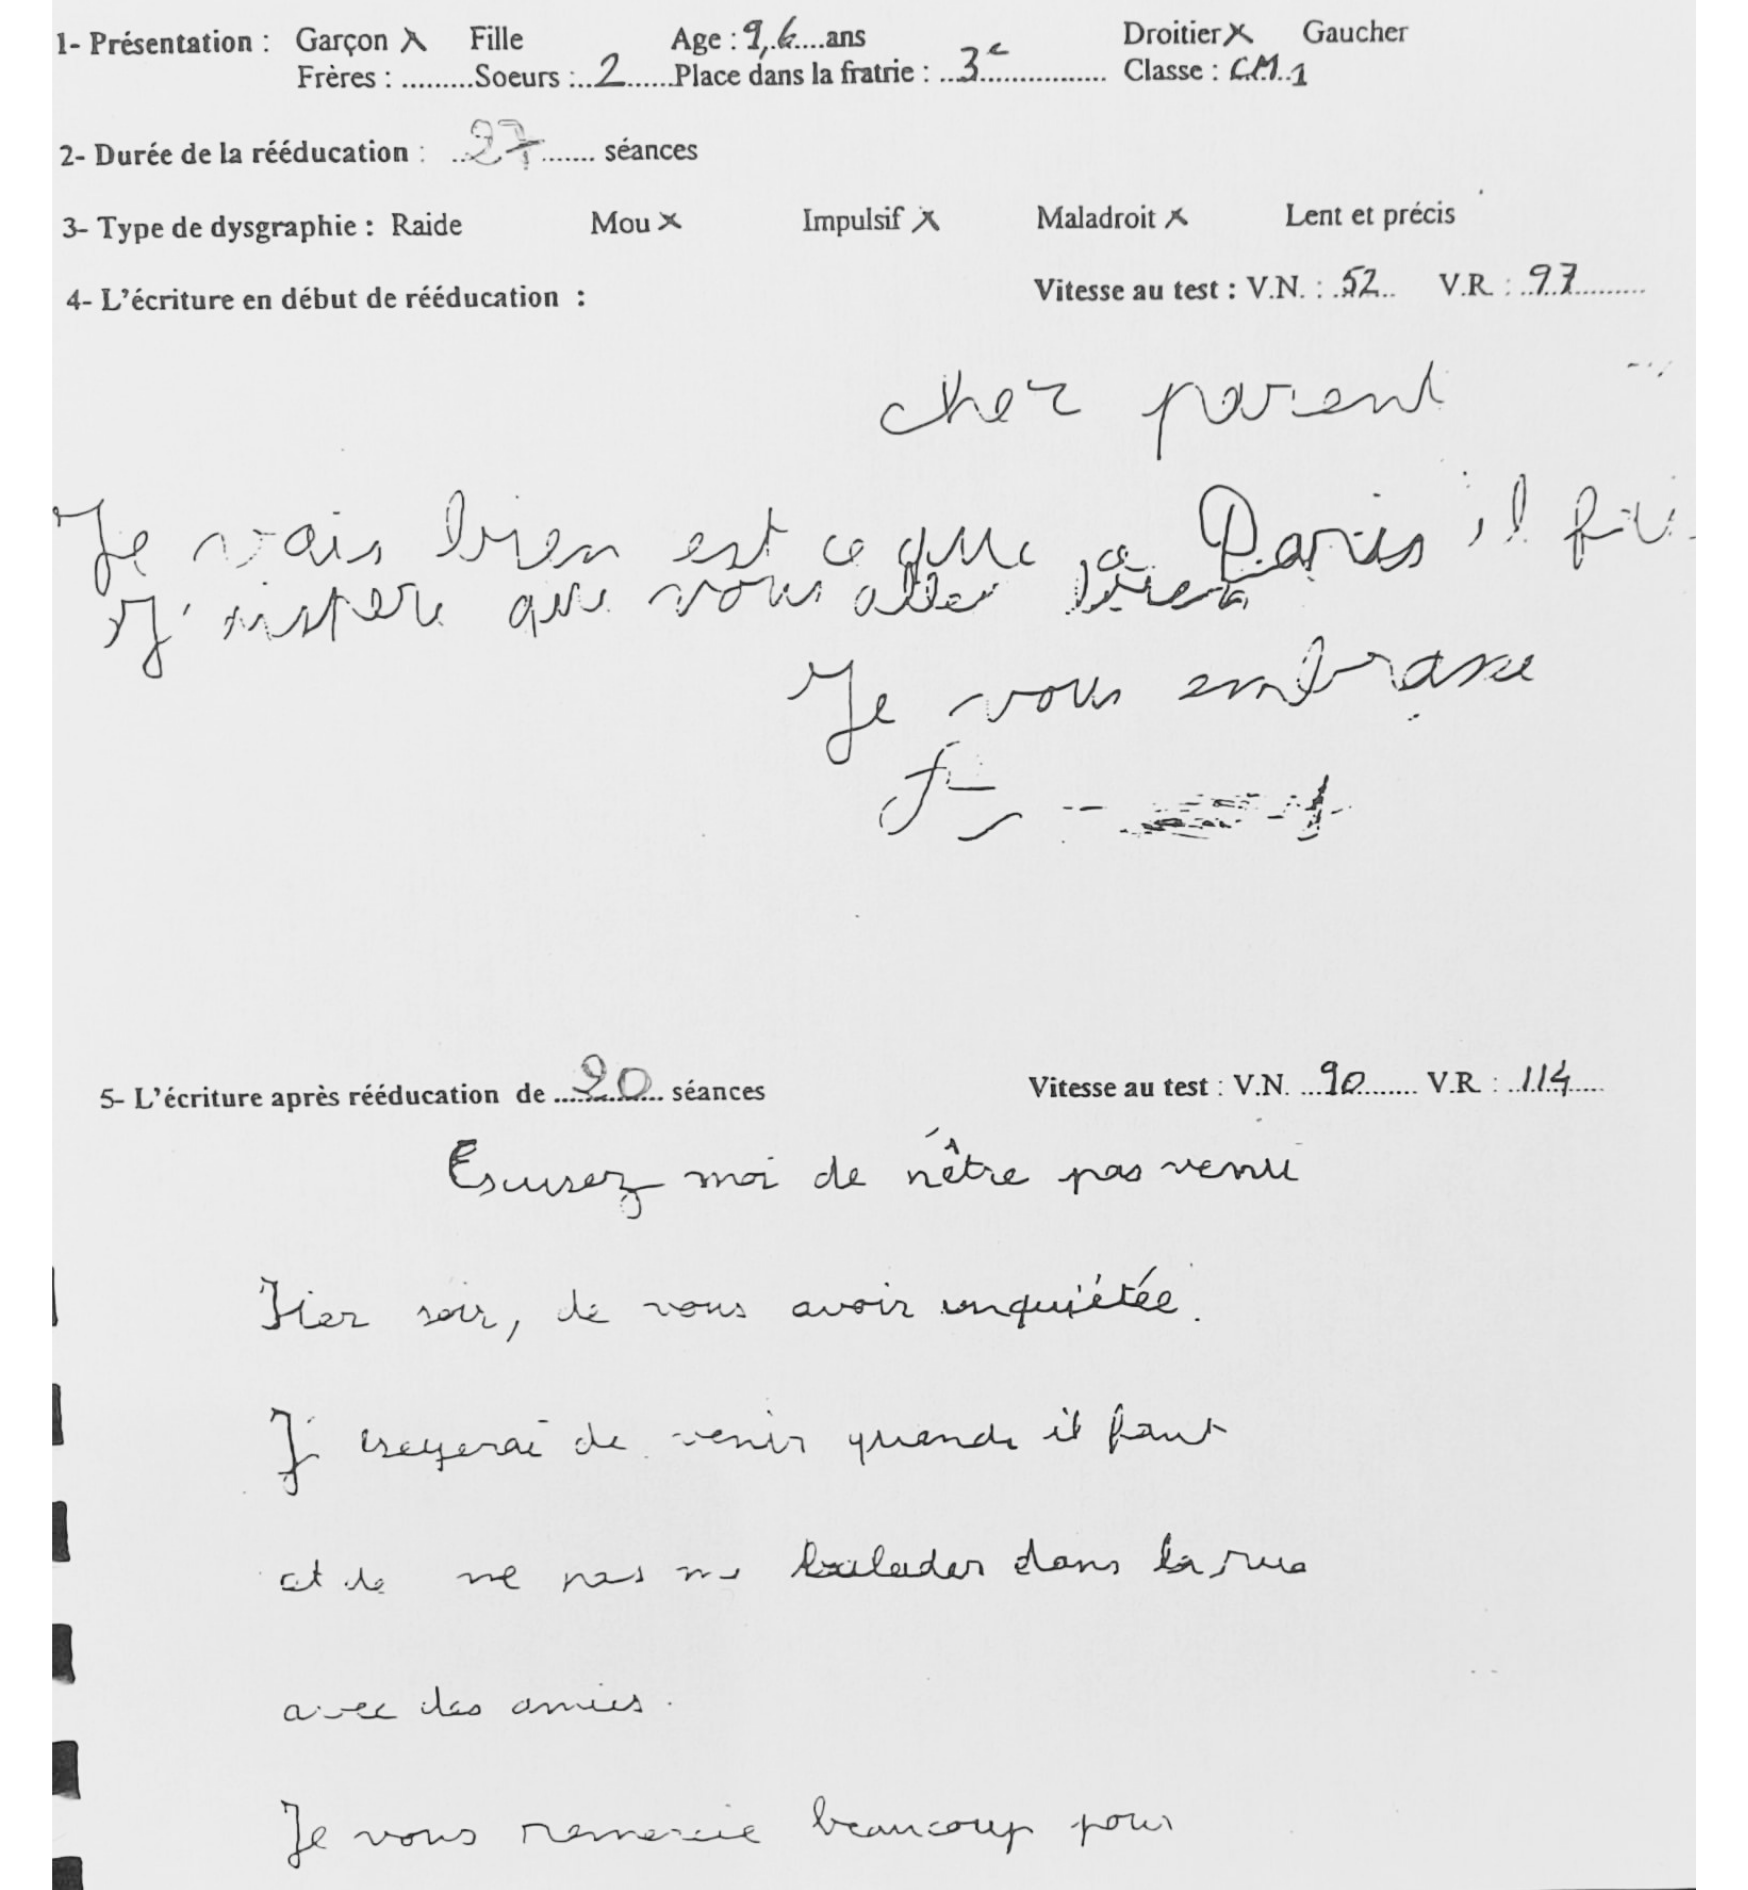 1- Présentation : Garçon x Fille Age : 9,6 ans Droitier x Gaucher
Frères : ......... Soeurs : 2 Place dans la fratrie : 3e Classe : CM1
2- Durée de la rééducation : 27 séances
3- Type de dysgraphie : Raide Mou x Impulsif x Maladroit x Lent et précis
4- L'écriture en début de rééducation : Vitesse au test : V.N. : 52 V.R : 97
cher parent
Je vais bien est ce que a Paris il
J' que vous aller bien
Je vous embrasse
5- L'écriture après rééducation de 20 séances Vitesse au test : V.N. 90 V.R : 114
Escusez moi de nêtre pas venu
Hier soir, de vous avoir inquiétée.
J' de venir quande il faut
et de ne pas me balader dans la rue
avec des amies.
Je vous remercie beaucoup pour